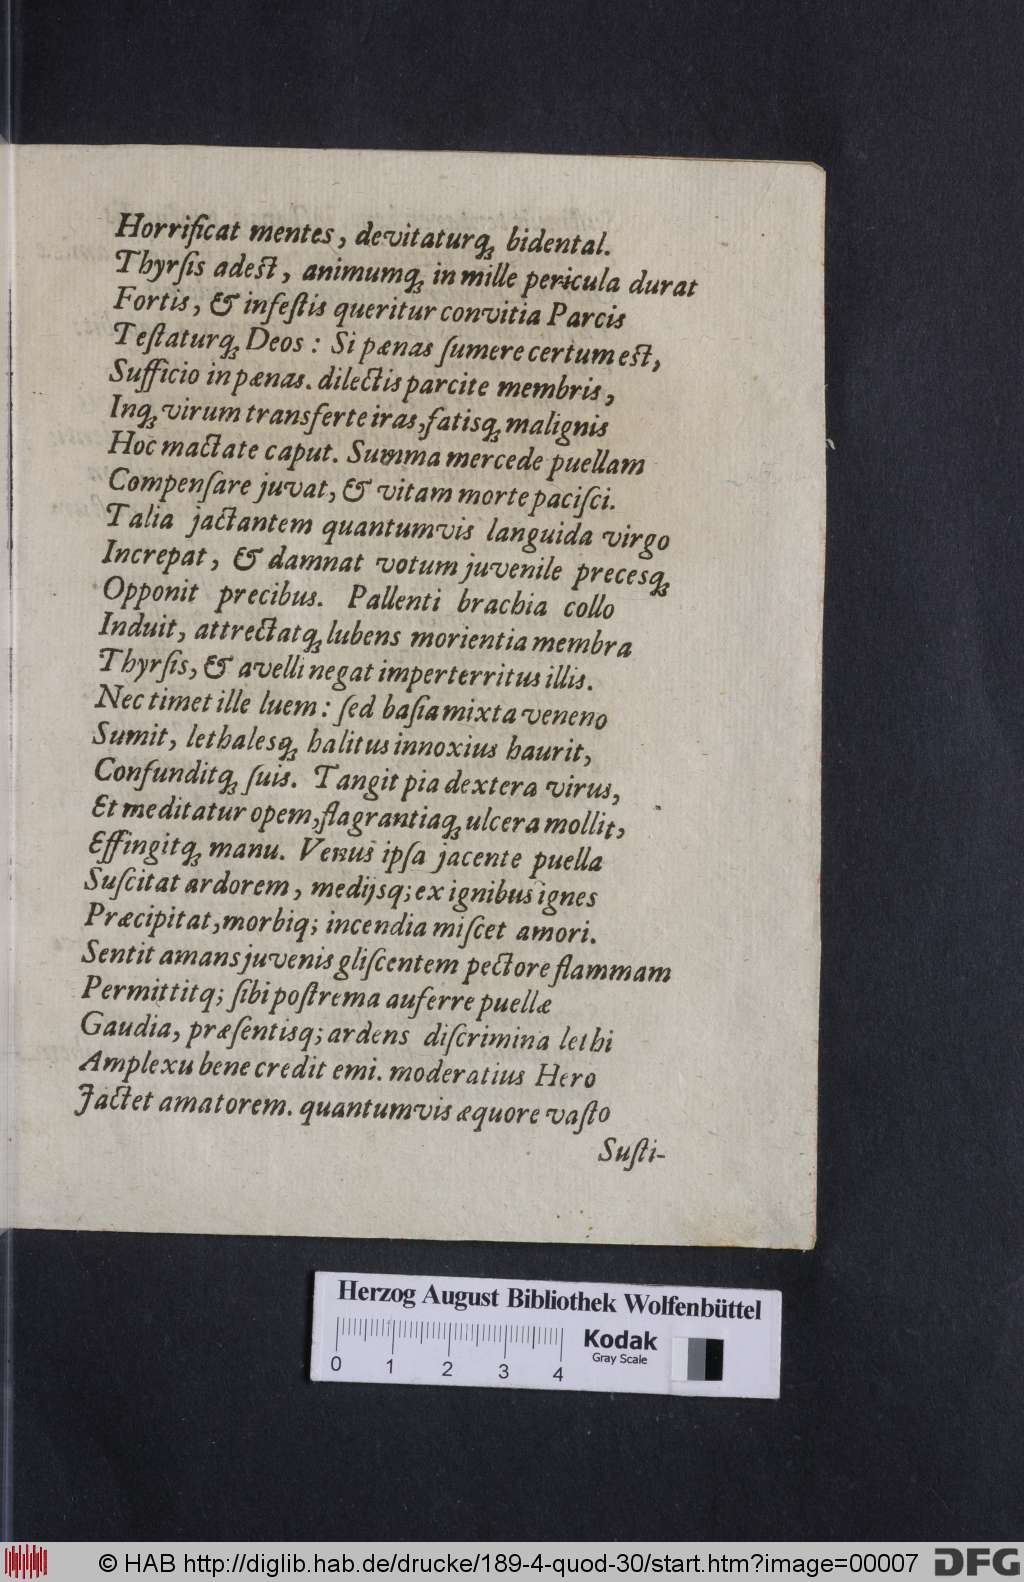 Horrificat mentes, devitaturq́ꝫ bidental.
Thyrſis adest, animumq́ꝫ in mille pericula durat
Fortis, & infeſtis queritur convitia Parcis
Teſtaturq́ꝫ Deos: Si pænas ſumere certum est,
Sufficio in pænas. dilectis parcite membris,
Inq́ꝫ virum transferte iras, fatisq́ꝫ malignis
Hoc mactate caput. Summa mercede puellam
Compenſare juvat, & vitam morte paciſci.
Talia jactantem quantumvis languida virgo
Increpat, & damnat votum juvenile precesq́ꝫ
Opponit precibus. Pallenti brachia collo
Induit, attrectatq́ꝫ lubens morientia membra
Thyrſis, & avelli negat imperterritus illis.
Nec timet ille luem: ſed baſia mixta veneno
Sumit, lethalesq́ꝫ halitus innoxius haurit,
Confunditq́ꝫ ſuis. Tangit pia dextera virus,
Et meditatur opem, flagrantiaq́ꝫ ulcera mollit,
Effingitq́ꝫ manu. Venus ipſa jacente puella
Suſcitat ardorem, medijsq; ex ignibus ignes
Præcipitat, morbiq; incendia miſcet amori.
Sentit amans juvenis gliſcentem pectore flammam
Permittitq; ſibi poſtrema auferre puellæ
Gaudia, præſentisq; ardens diſcrimina lethi
Amplexu bene credit emi. moderatius Hero
Jactet amatorem. quantumvis æquore vaſto
Suſti-
Herzog August Bibliothek Wolfenbüttel
Kodak
Gray Scale
0 1 2 3 4
© HAB http://diglib.hab.de/drucke/189-4-quod-30/start.htm?image=00007
DFG